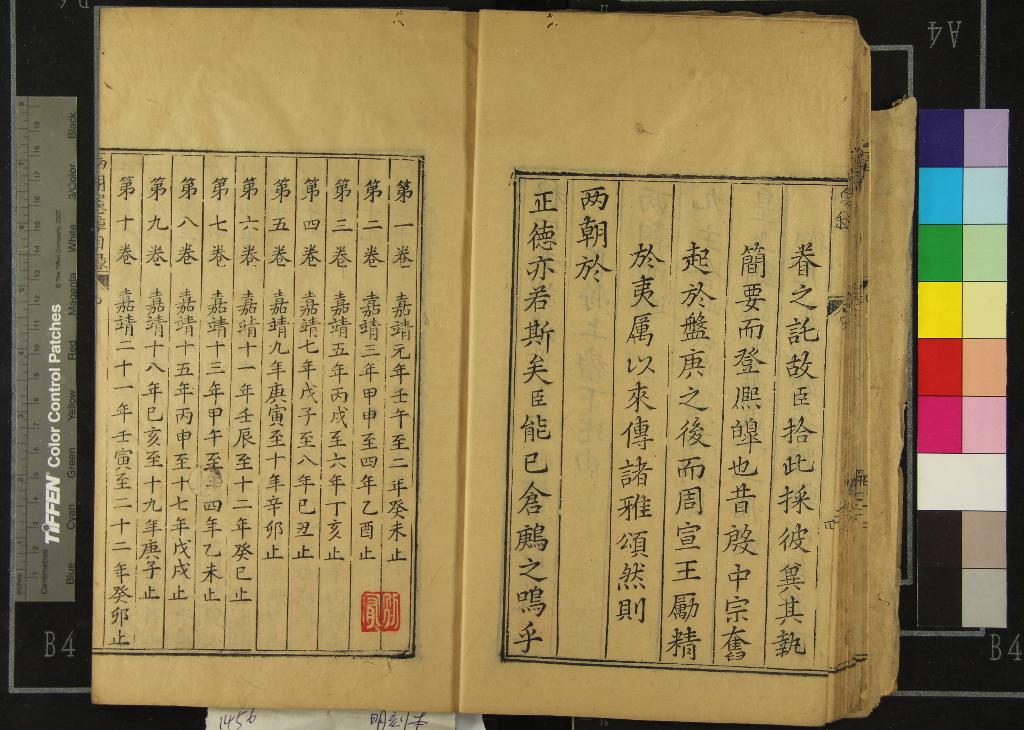 眷之託故臣拾此採彼兾其執
簡要而登熈皥也昔殷中宗奮
起於盤庚之後而周宣王勵精
於夷厲以來傳諸雅頌然則
两朝於
正德亦若斯矣臣能已倉鷓之鳴乎
第一卷 嘉靖元年壬午至二年癸未止
第二卷 嘉靖三年甲申至四年乙酉止
第三卷 嘉靖五年丙戌至六年丁亥止
第四卷 嘉靖七年戊子至八年己丑止
第五卷 嘉靖九年庚寅至十年辛卯止
第六卷 嘉靖十一年壬辰至十二年癸巳止
第七卷 嘉靖十三年甲午至十四年乙未止
第八卷 嘉靖十五年丙申至十七年戊戌止
第九卷 嘉靖十八年己亥至十九年庚子止
第十卷 嘉靖二十一年壬寅至二十二年癸卯止
TIFFEN Color Control Patches
© The Tiffen Company, 2007
Blue Cyan Green Yellow Red Magenta White 3/Color Black
Inches
Centimetres
B4
B4
A4
1456
明刻本